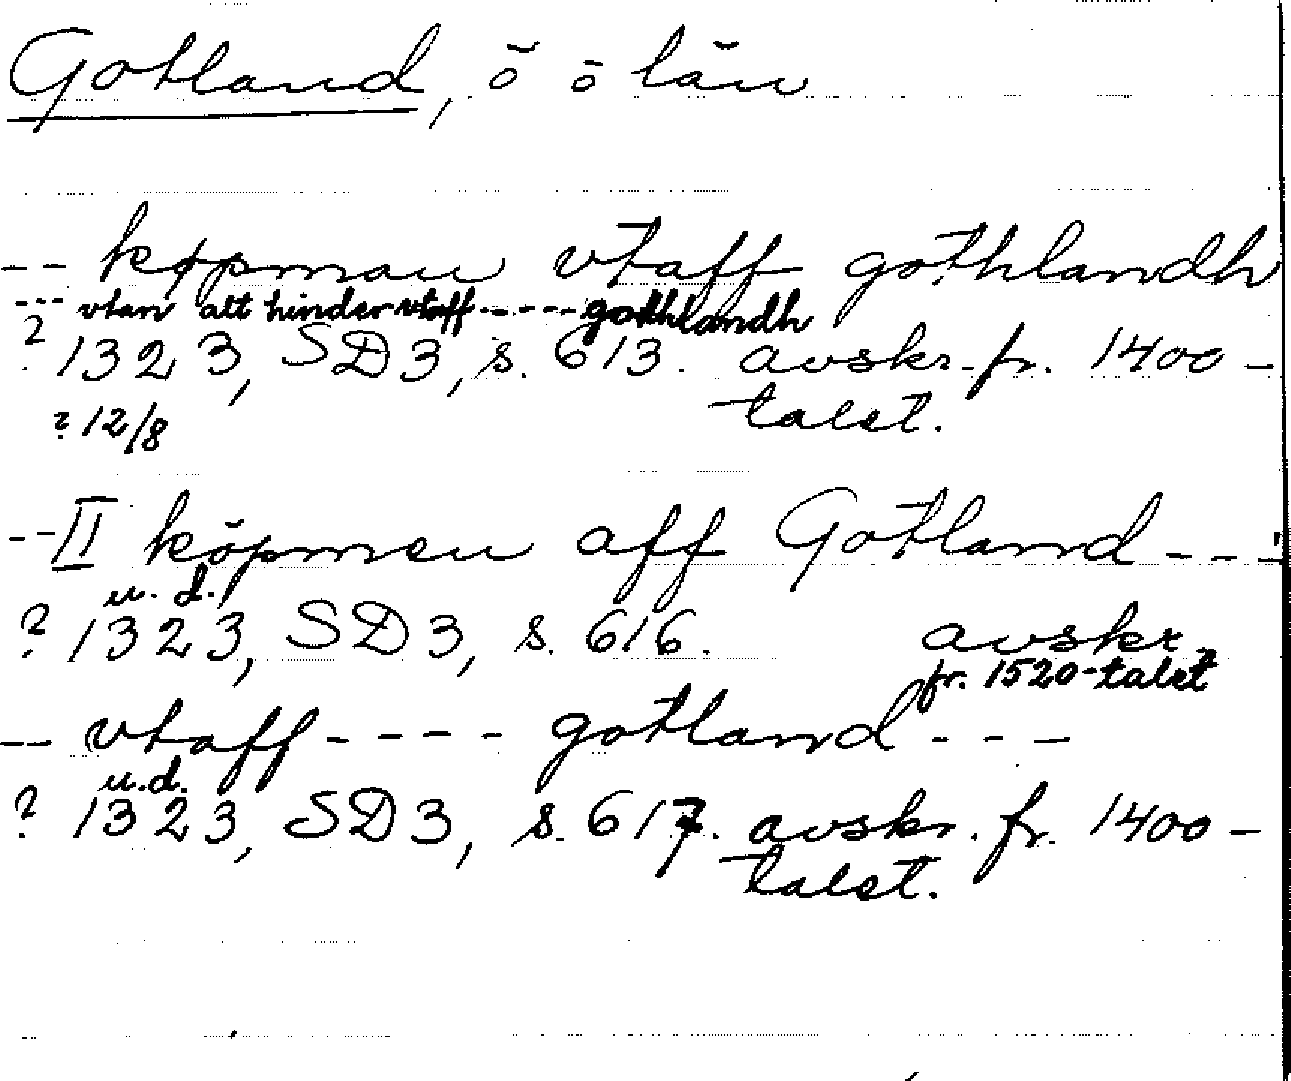 Gotland, ö ö län
-- køpman vtaff gothlandh
--- vtan alt hinder vtaff ----- godhlandh
? 1323, SD3, s. 613. avskr. fr. 1400-
? 12/8 talet.
-- II köpmen aff Gotland ---
u. d.
? 1323, SD3, s. 616. avskr.
fr. 1520-talet
-- vtaff ---- gotland ---
u.d.
? 1323, SD3, s. 617. avskr. fr. 1400-
talet.